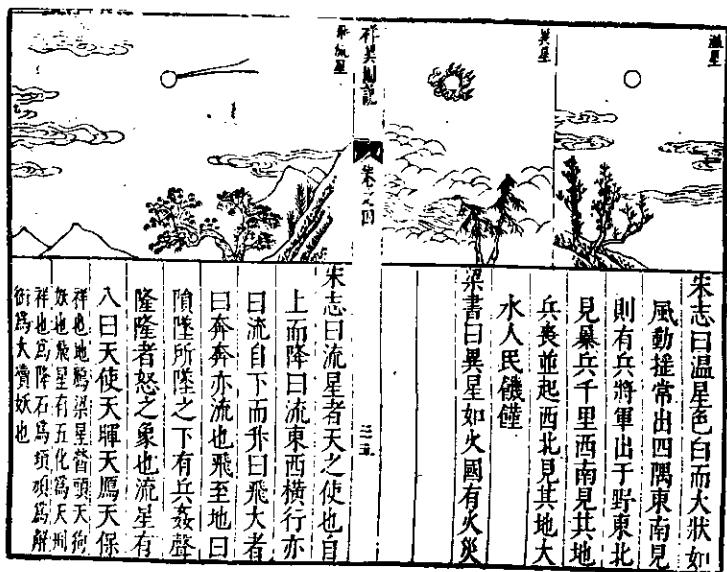 溫星
宋志曰温星色白而大狀如
風動揺常出四隅東南見
則有兵將軍出于野東北
見暴兵千里西南見其地
兵喪並起西北見其地大
水人民饑饉
異星
梁書曰異星如火國有火災
祥異圖說
卷之四
三五
飛流星
宋志曰流星者天之使也自
上而降曰流東西橫行亦
曰流自下而升曰飛大者
曰奔奔亦流也飛至地曰
隕墜所墜之下有兵姦聲
隆隆者怒之象也流星有
八曰天使天暉天鴈天保
祥也地鴈梁星營頭天狗
妖也飛星有五化爲天刑
祥也爲降石爲頊頊爲解
銜爲大賁妖也